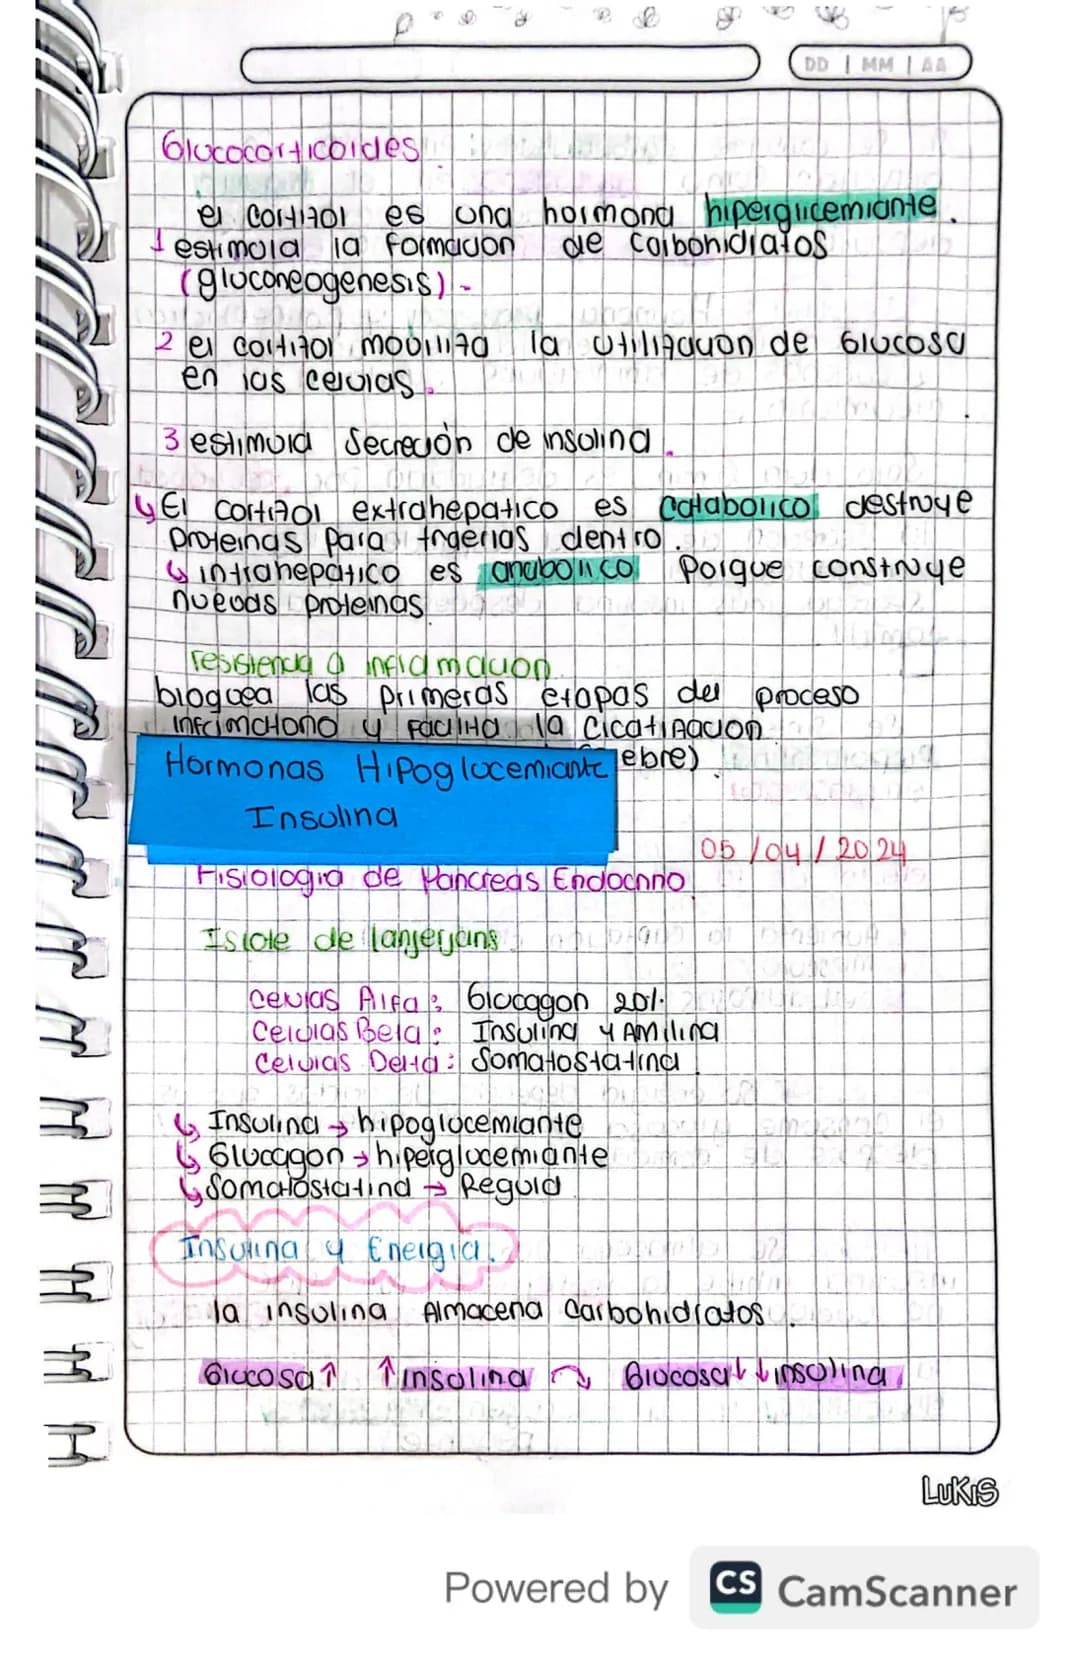 DD | MM | AA
Glucocorticoides
el cortizol es una hormona hiperglicemiante.
1 estimula la formacion de carbohidratos
(gluconeogenesis).
2 el cortizol moviliza la utilizacion de Glucosa
en las celulas.
3 estimula Secreción de insulina.
El cortizol extrahepatico es catabolico destruye
Proteinas para traerlas dentro.
intrahepatico es anabolico Porque construye
nuevas proteinas
resistencia a inflamacion
bloquea las primeras etapas del proceso
y Facilita la Cicatrizacion
ebre)
Hormonas Hipoglucemiante
Insulina
05/04/2024
Fisiologia de Pancreas Endocrino
Islote de lanjeryans
Celulas Alfa: Glucagon 20%
Celulas Beta: Insulina y AMilina
Celulas Delta: Somatostatina
↳ Insulina → hipoglucemiante
↳ Glucagon → hiperglucemiante
↳ Somatostatina → Regula
Insulina y Energia.
la insulina Almacena Carbohidratos.
Glucosa↑ ↑insulina ↷ Glucosa↓ ↓insulina
LUKIS
Powered by CS CamScanner